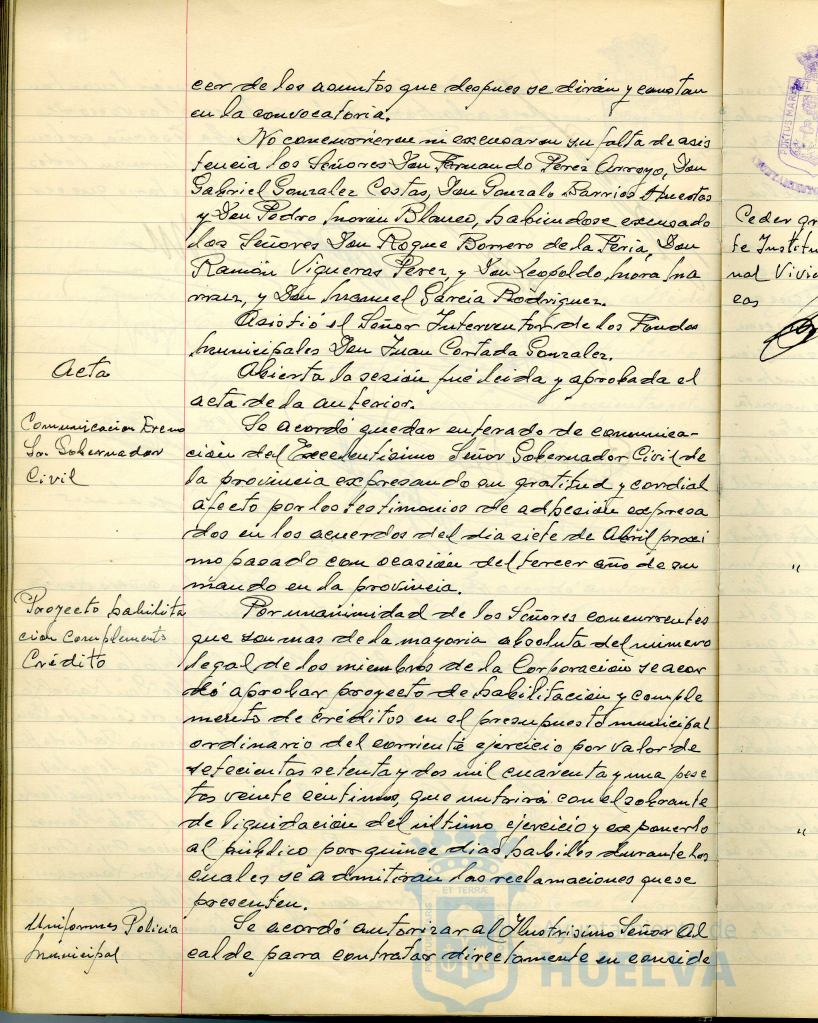 cer de los asuntos que despues se dirán y constan
en la convocatoria.
No concurrieron ni excusaron su falta de asis
tencia los Señores Don Fernando Perez Arroyo, Don
Gabriel Gonzalez Costas, Don Gonzalo Barrios Huestos
y Don Pedro Morán Blanco, habiéndose excusado
los Señores Don Roque Borrero de la Feria, Don
Ramón Vigueras Perez, y Don Leopoldo Mora Ma
rmez, y Don Manuel Garcia Rodriguez.
Asistió el Señor Interventor de los Fondos
Municipales Don Juan Cortada Gonzalez.
Acta
Abierta la sesión fué leida y aprobada el
acta de la anterior.
Comunicacion Excmo
Sr. Gobernador
Civil
Se acordó quedar enterado de comunica-
ción del Excelentisimo Señor Gobernador Civil de
la provincia expresando su gratitud y cordial
afecto por los testimonios de adhesión expresa
dos en los acuerdos del dia siete de Abril proxi
mo pasado con ocasión del tercer año de su
mando en la provincia.
Proyecto habilita
cion complemento
Crédito
Por unanimidad de los Señores concurrentes
que son mas de la mayoria absoluta del número
legal de los miembros de la Corporación se acor
dó aprobar proyecto de habilitación y comple
mento de créditos en el presupuesto municipal
ordinario del corriente ejercicio por valor de
setecientas setenta y dos mil cuarenta y una pese
tas veinte céntimos, que nutrirá con el sobrante
de liquidación del ultimo ejercicio y exponerlo
al público por quince dias habiles durante los
cuales se admitiran las reclamaciones que se
presenten.
Uniformes Policia
Municipal
Se acordó autorizar al Ilustrisimo Señor Al
calde para contratar directamente en conside
Ceder gr
te Institu
nal Vivie
cas
"
"
PORTUS MARIS
PORTUS MARIS ET TERRÆ
de
HUELVA